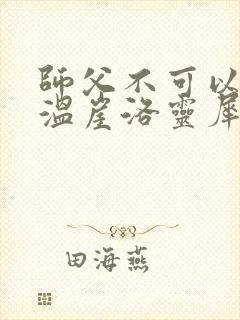 師父不可以
溫崖洛靈犀
田海燕